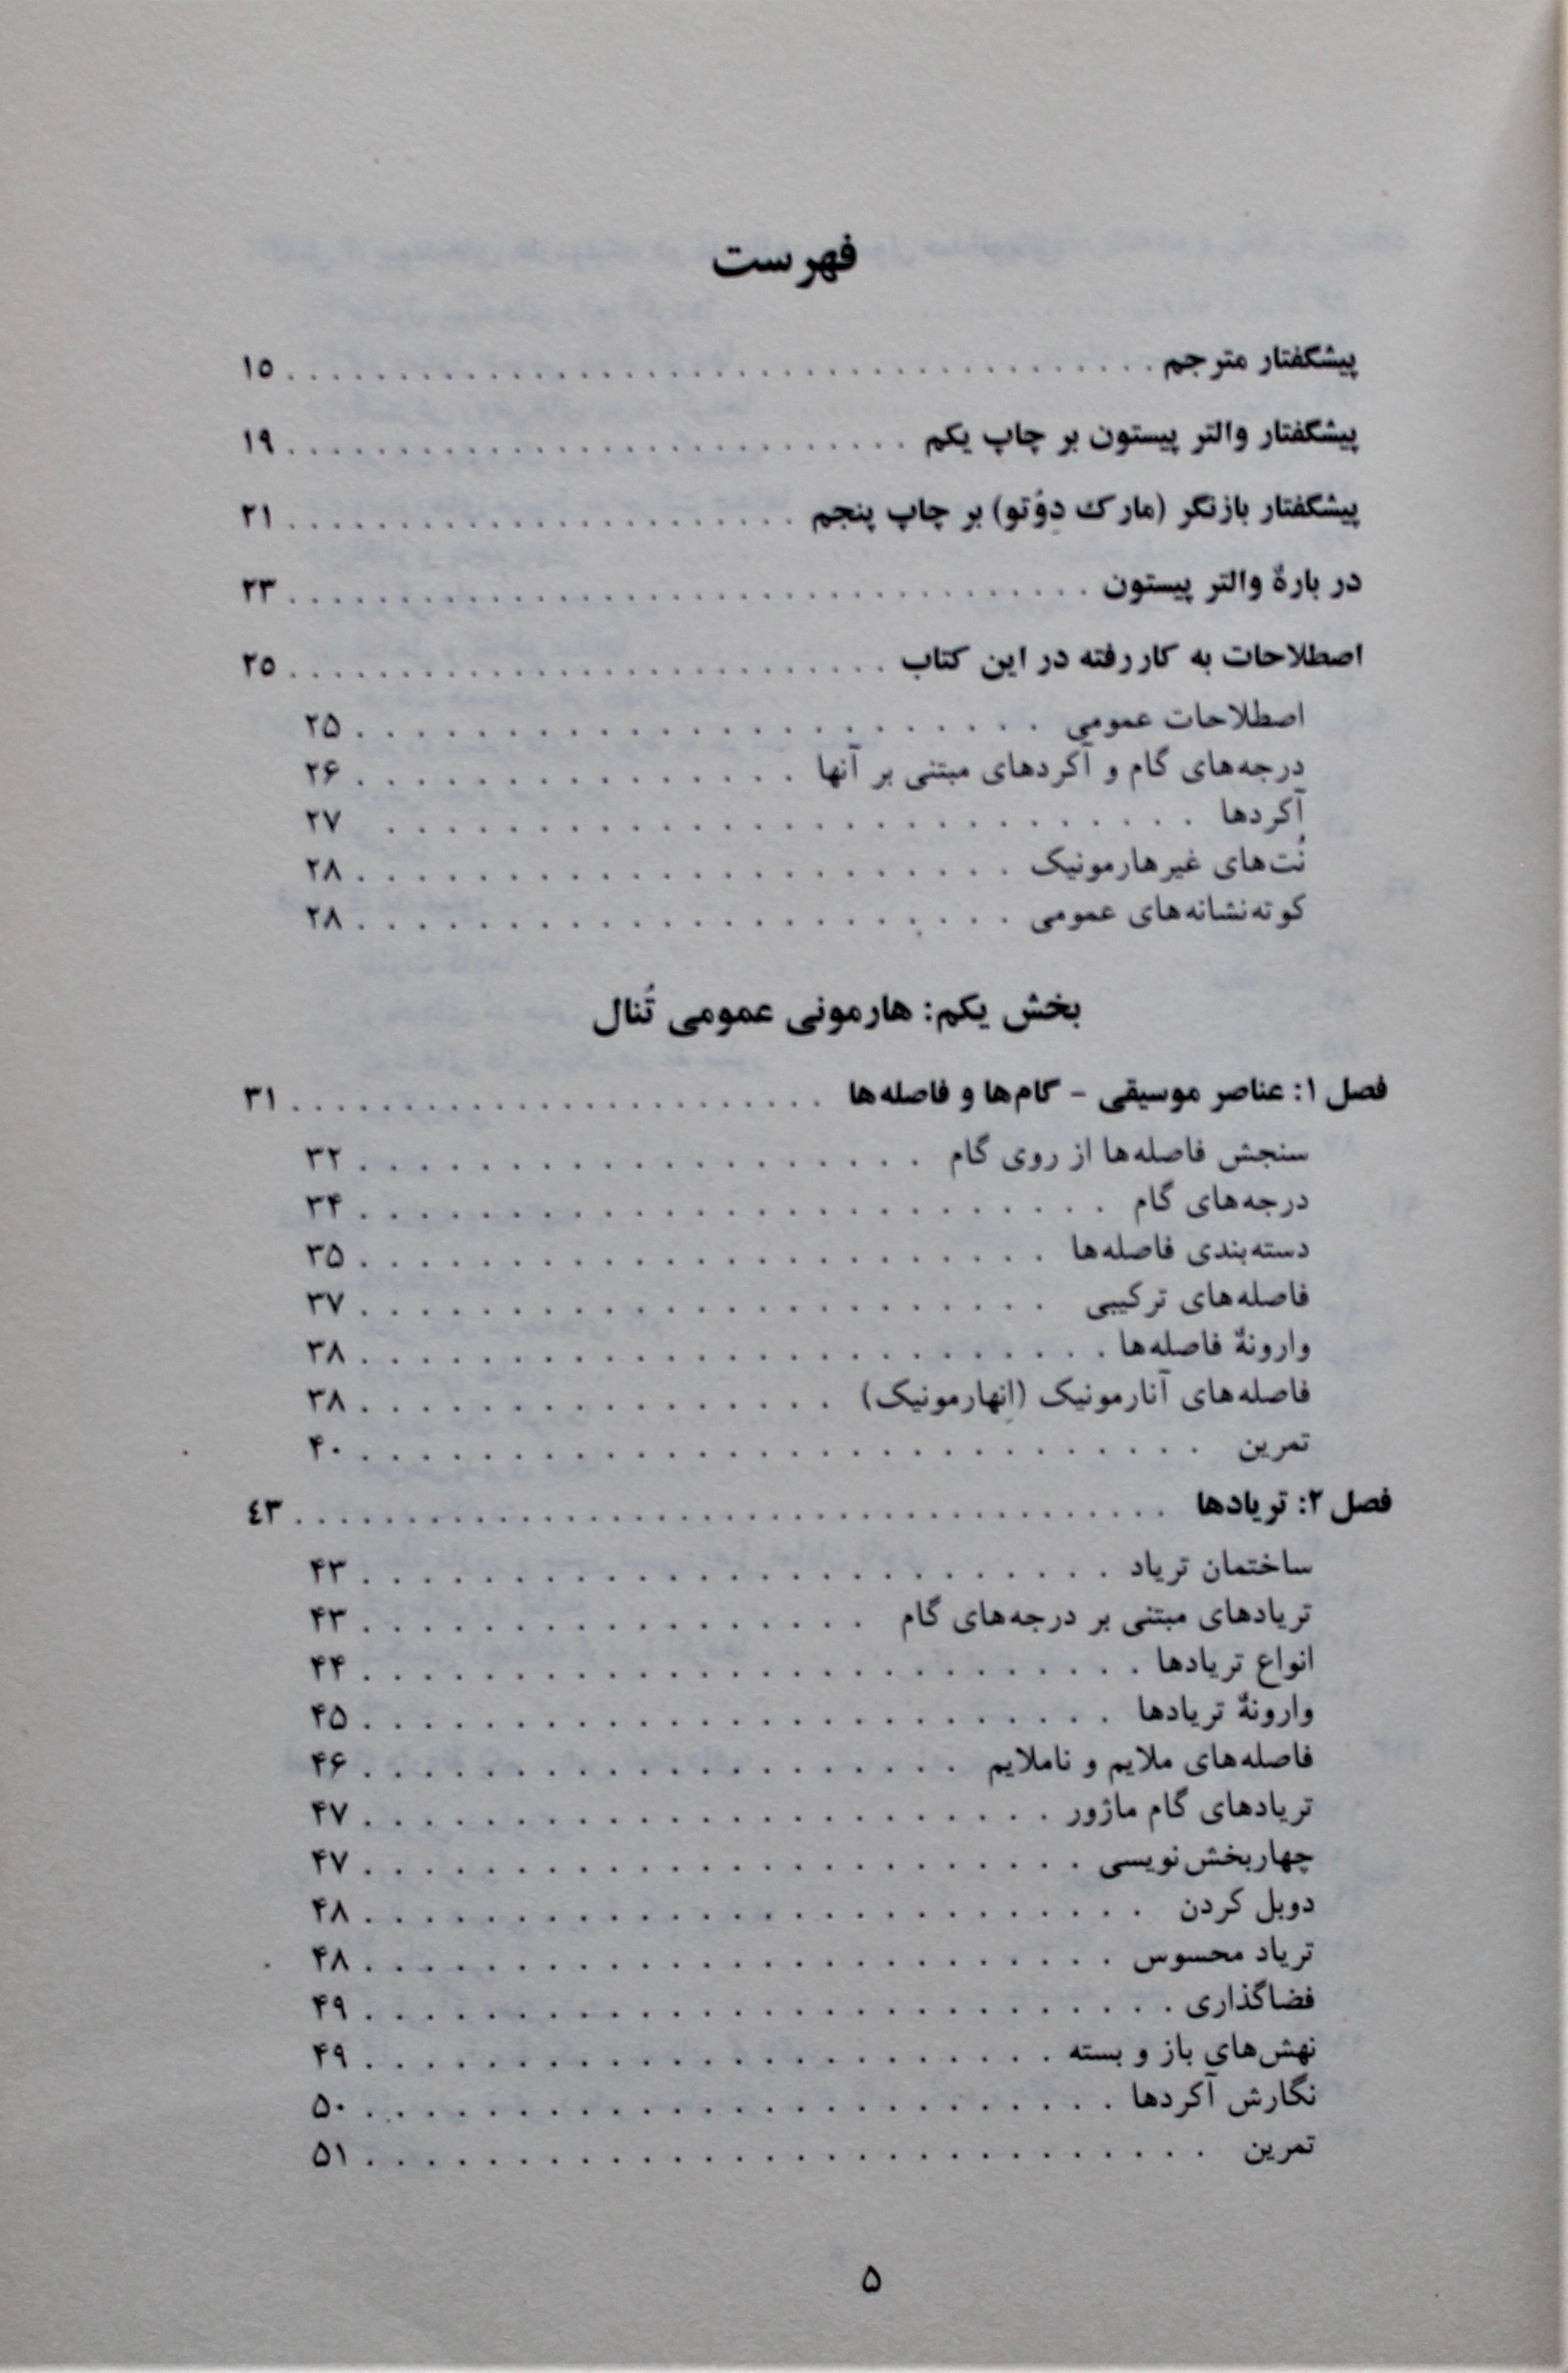 فهرست
پیشگفتار مترجم . . . . . . . . . . ۱۵
پیشگفتار والتر پیستون بر چاپ یکم . . . . . . . . . . ۱۹
پیشگفتار بازنگر (مارک دِوُتو) بر چاپ پنجم . . . . . . . . . . ۲۱
در بارهٔ والتر پیستون . . . . . . . . . . ۲۳
اصطلاحات به کار رفته در این کتاب . . . . . . . . . . ۲۵
اصطلاحات عمومی . . . . . . . . . . ۲۵
درجه‌های گام و آکردهای مبتنی بر آنها . . . . . . . . . . ۲۶
آکردها . . . . . . . . . . ۲۷
نُت‌های غیرهارمونیک . . . . . . . . . . ۲۸
کوته‌نشانه‌های عمومی . . . . . . . . . . ۲۸
بخش یکم: هارمونی عمومی تُنال
فصل ۱: عناصر موسیقی - گام‌ها و فاصله‌ها . . . . . . . . . . ۳۱
سنجش فاصله‌ها از روی گام . . . . . . . . . . ۳۲
درجه‌های گام . . . . . . . . . . ۳۴
دسته‌بندی فاصله‌ها . . . . . . . . . . ۳۵
فاصله‌های ترکیبی . . . . . . . . . . ۳۷
وارونهٔ فاصله‌ها . . . . . . . . . . ۳۸
فاصله‌های آنارمونیک (اِنهارمونیک) . . . . . . . . . . ۳۸
تمرین . . . . . . . . . . ۴۰
فصل ۲: تریادها . . . . . . . . . . ٤۳
ساختمان تریاد . . . . . . . . . . ۴۳
تریادهای مبتنی بر درجه‌های گام . . . . . . . . . . ۴۳
انواع تریادها . . . . . . . . . . ۴۴
وارونهٔ تریادها . . . . . . . . . . ۴۵
فاصله‌های ملایم و ناملایم . . . . . . . . . . ۴۶
تریادهای گام ماژور . . . . . . . . . . ۴۷
چهاربخش‌نویسی . . . . . . . . . . ۴۷
دوبل کردن . . . . . . . . . . ۴۸
تریاد محسوس . . . . . . . . . . ۴۸
فضاگذاری . . . . . . . . . . ۴۹
نهش‌های باز و بسته . . . . . . . . . . ۴۹
نگارش آکردها . . . . . . . . . . ۵۰
تمرین . . . . . . . . . . ۵۱
۵